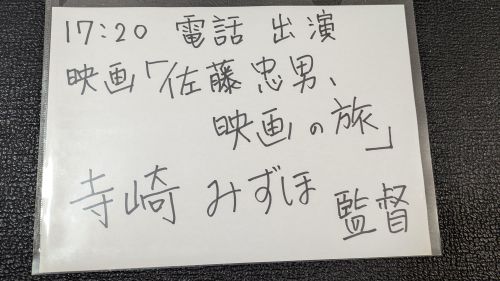 17:20 電話 出演
映画「佐藤忠男、
映画の旅」
寺崎 みずほ 監督